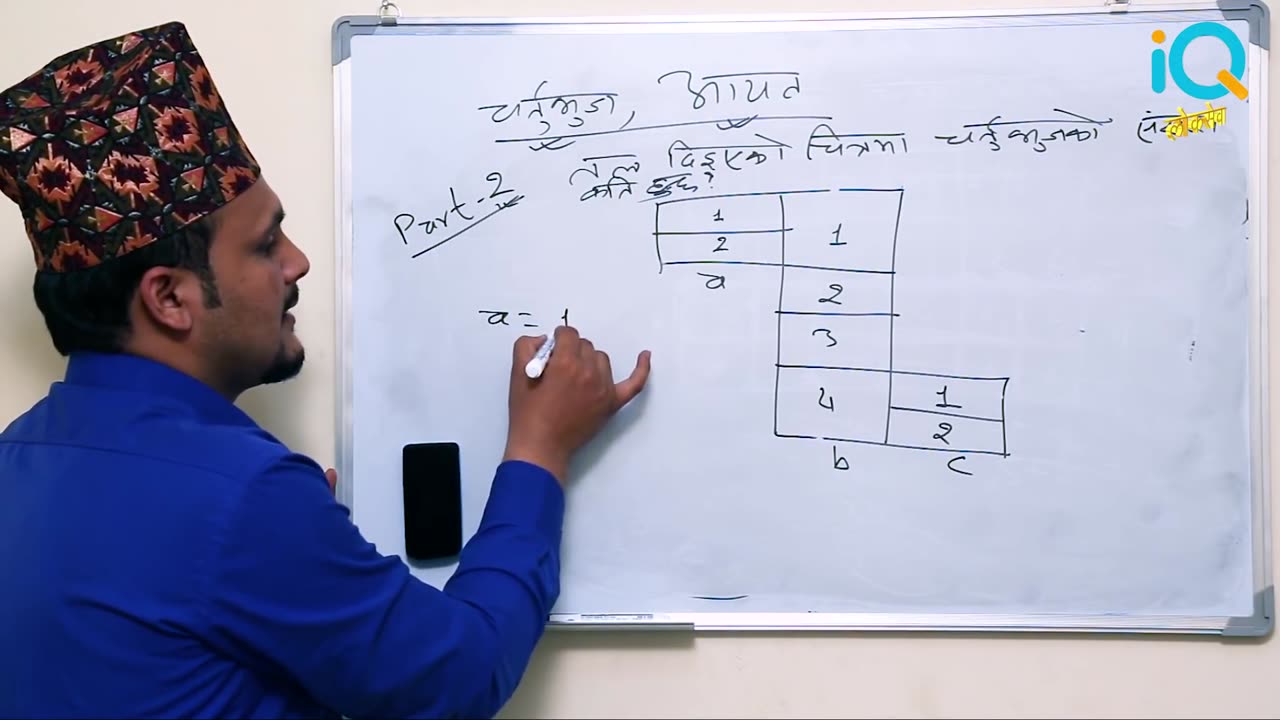 iQ
लोकसेवा
चर्तुभुज, आयत
Part-2
तल दिइएको चित्रमा चर्तुभुजको
कति छ?
1
2
a
1
2
3
4
b
1
2
c
a = 1